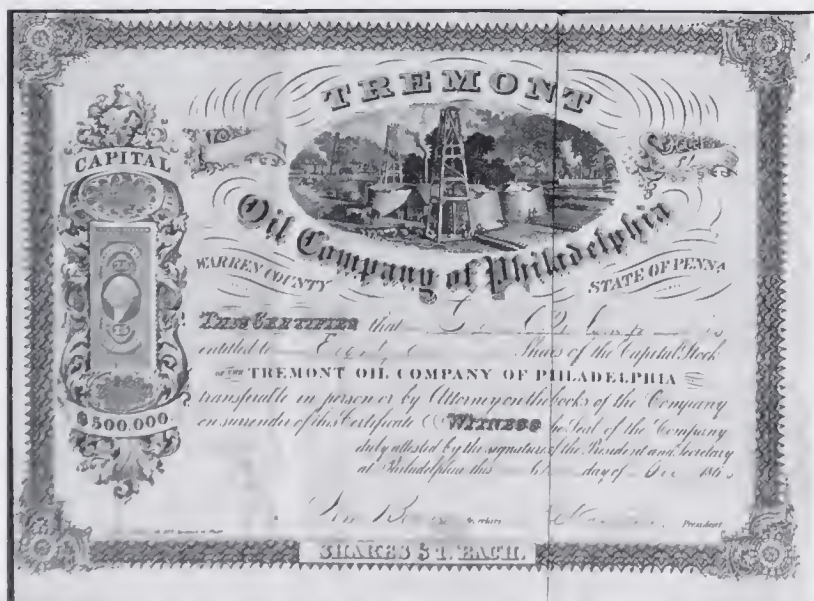 TREMONT
Oil Company of Philadelphia
CAPITAL
WARREN COUNTY
STATE OF PENNA
THIS CERTIFIES that
entitled to Shares of the Capital Stock
OF THE TREMONT OIL COMPANY OF PHILADELPHIA
transferable in person or by Attorney on the books of the Company
on surrender of this Certificate WITNESS the Seal of the Company
$500,000.
duly attested by the signature of the President and Secretary
at Philadelphia this day of Dec 186
President
SHARES $1. EACH.